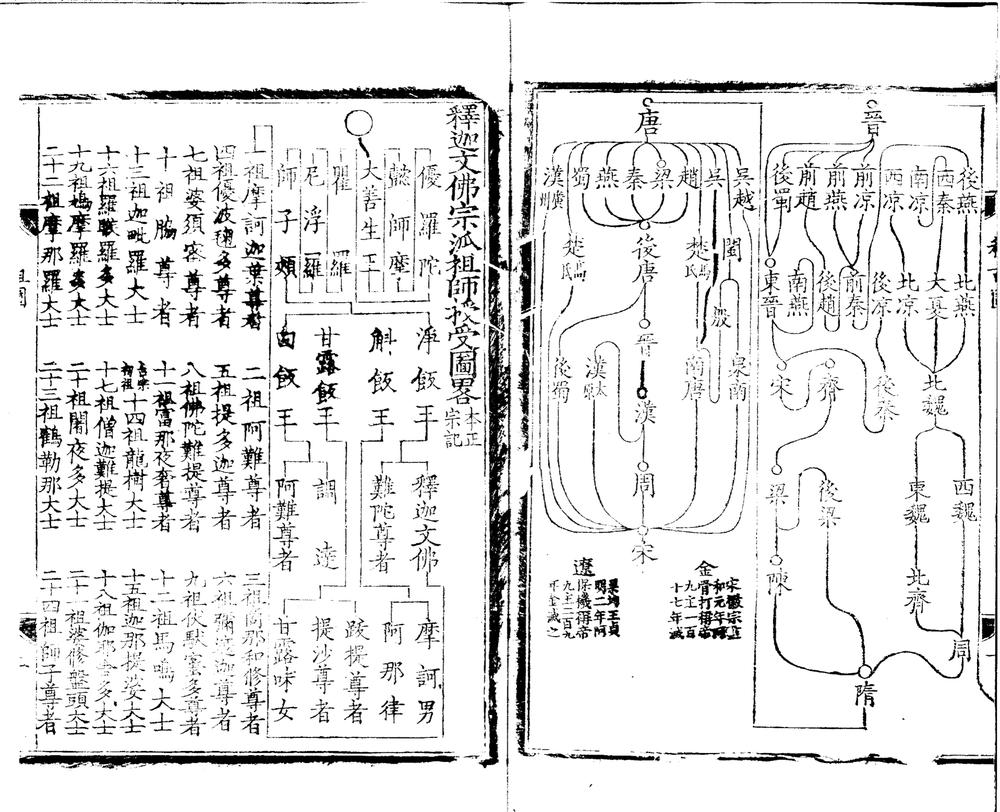 晉
後燕
西秦
南凉
西凉
前凉
前燕
前趙
後蜀
北燕
大夏
北凉
後凉
前秦
後趙
南燕
東晉
北魏
後秦
齊
宋
西魏
東魏
後梁
梁
北齊
陳
周
隋
唐
吳越
吳
趙
梁
秦
燕
蜀
漢
閩
楚馬氏
後唐
楚
殷
晉
泉南
南唐
漢
漢
後蜀
周
宋
金
宋徽宗
和元年
骨打稱帝
九主一百
十七年滅
遼
梁均王貞
明二年阿
保機稱帝
九主二百九
年金滅之
釋迦文佛宗派祖師授受圖畧
本正
宗記
優羅陀
師摩
大善生王
瞿羅
尼浮羅
師子頰
淨飯王
斛飯王
甘露飯王
白飯王
釋迦文佛
難陀尊者
調達
阿難尊者
摩訶男
阿那律
跋提尊者
提沙尊者
甘露味女
一祖摩訶迦葉尊者
二祖阿難尊者
三祖商那和修尊者
四祖優波毱多尊者
五祖提多迦尊者
六祖彌遮迦尊者
七祖婆須密尊者
八祖佛陀難提尊者
九祖伏馱蜜多尊者
十祖脇尊者
十一祖富那夜奢尊者
十二祖馬鳴大士
十三祖迦毗羅大士
十四祖龍樹大士
十五祖迦那提婆大士
十六祖羅睺羅多大士
十七祖僧迦難提大士
十八祖伽耶舍多大士
十九祖鳩摩羅多大士
二十祖闍夜多大士
二十一祖婆修盤頭大士
二十二祖摩那羅大士
二十三祖鶴勒那大士
二十四祖師子尊者
祖圖